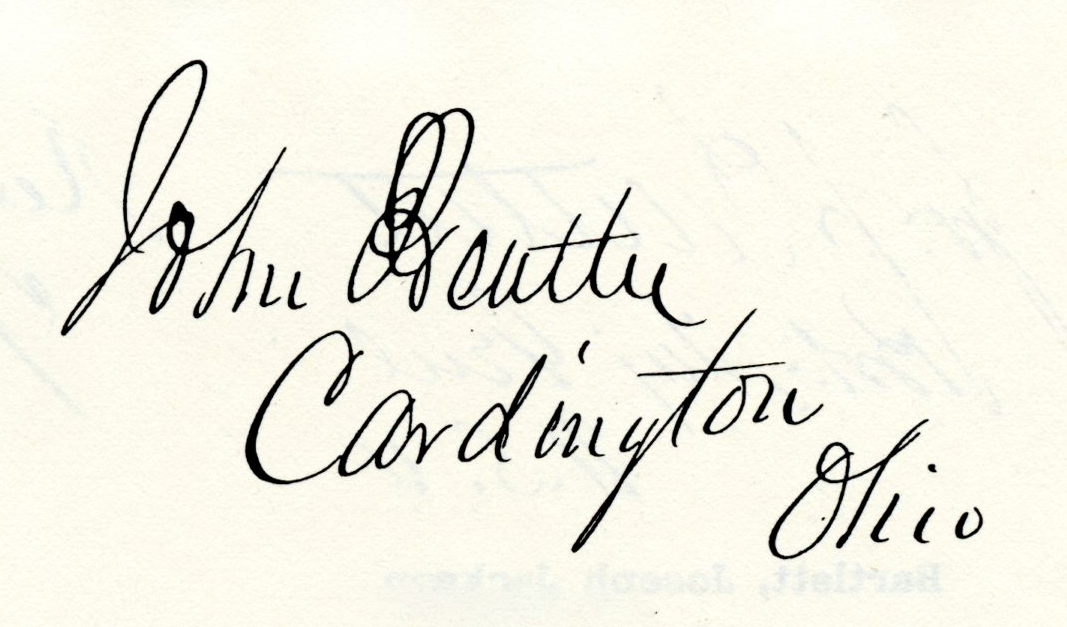 John Beatty
Cardington
Ohio